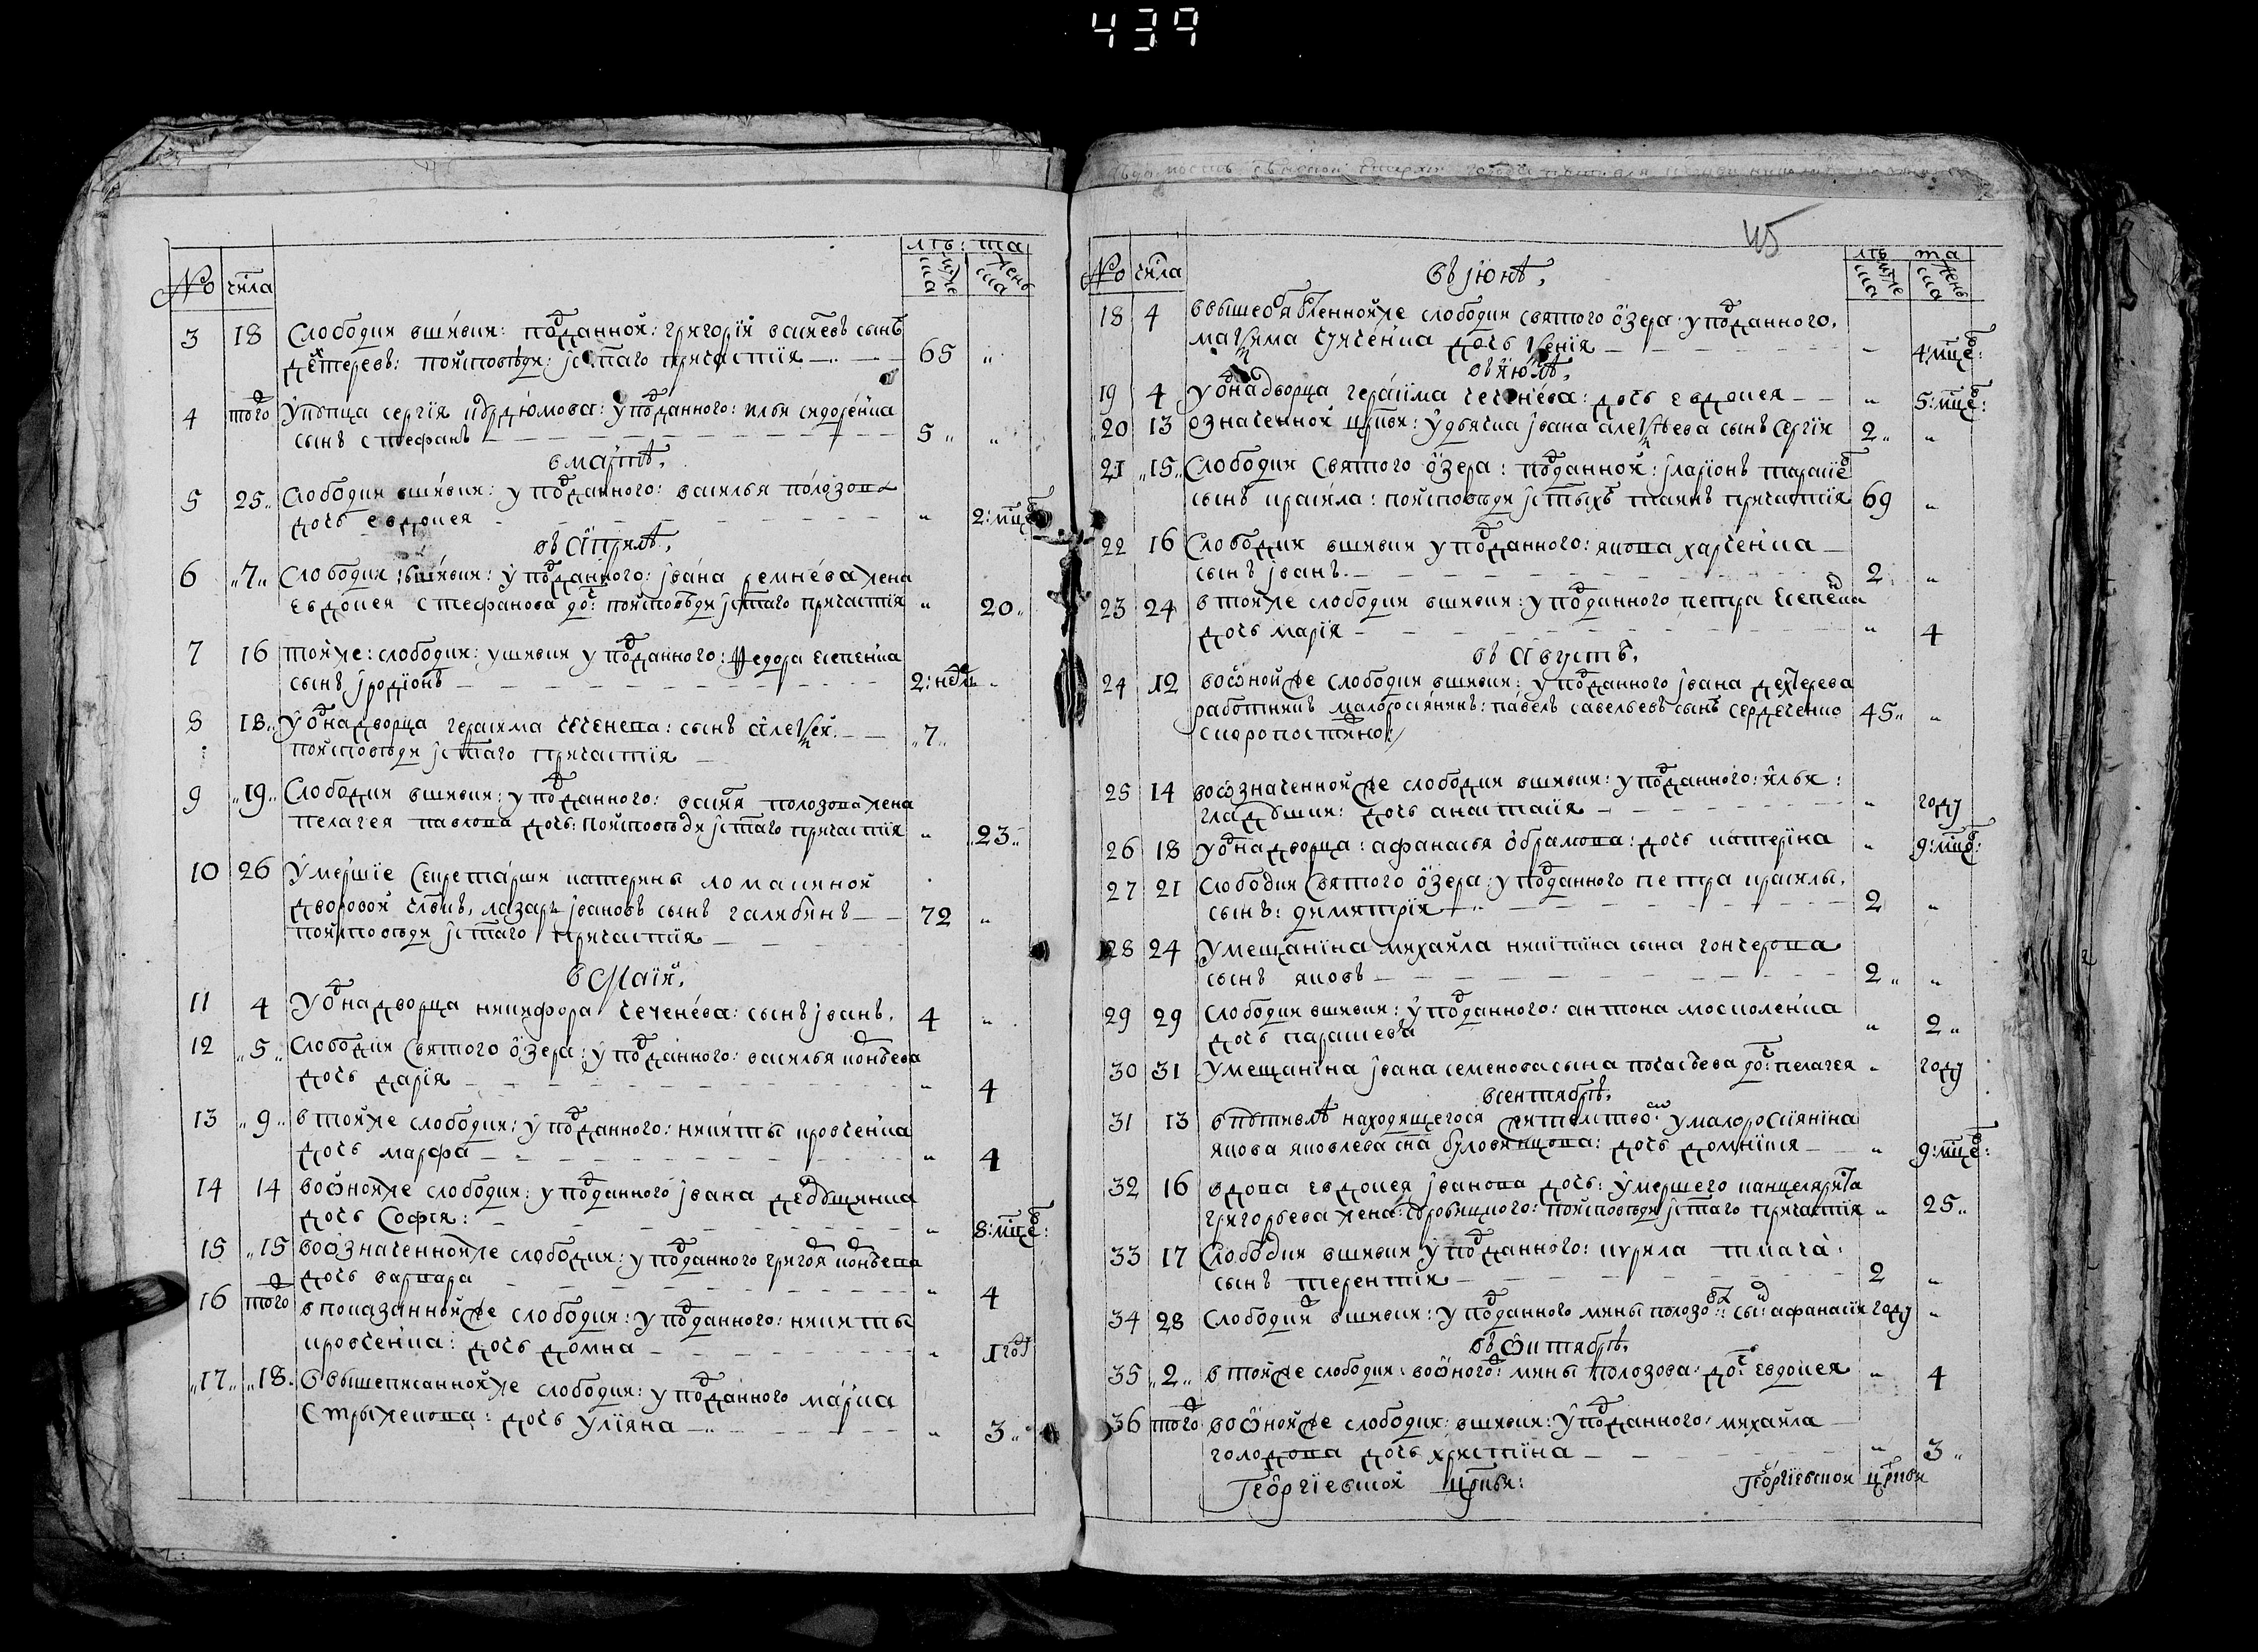 439
№ числа лѣ: та
мужеска женска
3 18 Слободки вшивки: подданной: григорїй васи́евъ сынъ
дехтеревъ: поисповѣди: и стаго причастїя 65 „
4 того У купца сергїя бурдюмова: у подданного: ильи сидоре́нка
сынъ стефанъ 5 „ „
в ма́ртѣ,
5 25 Слободки вшивки: у подданного: василья поло́зова
дочь евдокея „ 2: мцъ
въ Априлѣ,
6 „7„ Слободки вшивки: у подданного: ива́на ремне́ва жена
евдокея стефанова дочь: поисповѣди и стаго причастїя „ 20 „
7 16 тойже: слободки: ушивки у подданного: федора есипенка
сынъ иродїонъ 2: недѣль „
8 18 У однадворца герасима чеченева: сынъ алеѯей
поисповѣди и стаго причастїя „7„
9 „19„ Слободки вшивки: у подданного: васи́я полозова жена
пелагея павлова дочь: поисповѣди и стаго причастїя „ „23„
10 26 Умершїе Секретарши катерины ломакиной
дворовой члвкъ, лазарь ивановъ сынъ галябинъ 72 „
поисповѣди и стаго причастїя
в Маїи,
11 4 У однадворца никифора чечене́ва: сынъ иванъ, 4 „
12 „5„ Слободки Святого о́зера: у подданного: василья
дочь дарїя „ 4
13 „9„ в тойже слободки: у подданного: никиты кровченка
дочь марфа „ 4
14 14 воѿнойже слободки: у подданного ивана
дочь Софїя: „ 8: мцъ:
15 „15 воѿзначеннойже слободки: у подданного григо́я
дочь варвара „ 4
16 того в показаннойже слободки: у подданного: никиты
кровченка: дочь домна „ 1 год
„17„ „18„ В вышеписаннойже слободки: у подданного ма́рка
Стрыжекова: дочь улїяна „ 3 „
45
№ числа лѣ та
мужеска женска
въ июнѣ,
18 4 в вышеобявленнойже слободки святого о́зера: у подданного,
маѯима дочь ѯенїя „ 4: мцъ:
въ июлѣ,
19 4 У однадворца гера́сима чечене́ва: дочь евдокея „ 5: мцъ:
20 13 означенной цркви: у дьячка ивана алеѯѣева сынъ Сергїи 2 „ „
21 „15„ Слободки Святого о́зера: подданной: иларїонъ
сынъ красила: поисповѣди и стыхъ таинъ причастїя 69 „
22 16 Слободки вшивки у подданного: якова харченка
сынъ иванъ 2 „
23 24 в тойже слободки вшивки: у подданного петра есепенка
дочь марїя „ 4
въ Августѣ,
24 12 воѿнойже слободки вшивки: у подданного ивана дехтерева
работникъ малоросїянинъ: павелъ савельевъ сынъ сердеченко 45 „ „
скоропостижно
25 14 воѿзначеннойже слободки вшивки: у подданного: ильи:
дочь анастасїя „ году
26 18 у однадворца: афанасья о́брамова: дочь катерїна „ 9: мцъ:
27 21 Слободки Святого о́зера: у подданного петра красилы,
сынъ: димитрїя 2 „
28 24 У мещанїна михаила никїтїна сына гончерова
сынъ яковъ 2 „ „
29 29 Слободки вшивки: у подданного: антона москоленка
дочь парашева „ 2 „
30 31 У мещанїна ивана семенова сына дочь: пелагея „ году
всентябрѣ,
31 13 в путивлѣ находящегося жителство: у малоросїянїна
якова яковлева сна дочь домникїя „ 9: мцъ:
32 16 вдова евдокея иванова дочь: умершего канцеляриста
григорьева жена: поисповѣди и стаго причастїя „ 25 „
33 17 Слободки вшивки у подданного: кѵрила ткача:
сынъ терентїя 2 „
34 28 Слободки вшивки: у подданного мины полозо: сы: афанасїи году „
въ ѿктябрѣ,
35 „2„ в тойже слободки: воѿного: мины полозова: до: евдокея „ 4
36 того воѿнойже слободки: вшивки: у подданного: михаила
голодова дочь христїна „ 3 „
Геѻргїевской цркви: Геѻргїевской цркви